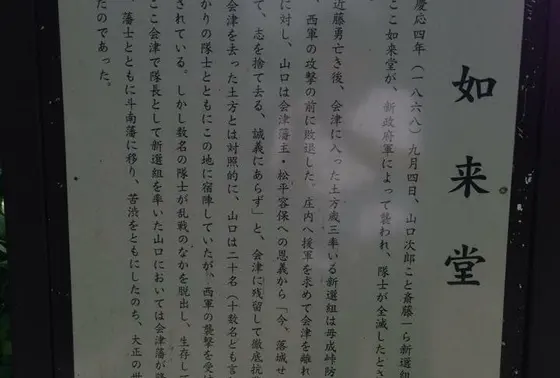 如来堂
慶応四年(一八六八)九月四日、山口次郎こと斎藤一ら新選組
ここ如来堂が、新政府軍によって襲われ、隊士が全滅したとさ
近藤勇亡き後、会津に入った土方歳三率いる新選組は母成峠防
、西軍の攻撃の前に敗退した。庄内へ援軍を求めて会津を離れ
に対し、山口は会津藩主・松平容保への恩義から「今、落城せ
て、志を捨て去る、誠義にあらず」と、会津に残留して徹底抗
会津を去った土方とは対照的に、山口は二十名(十数名とも言
かりの隊士とともにこの地に宿陣していたが、西軍の襲撃を受け
されている。しかし数名の隊士が乱戦のなかを脱出し、生存して
ここ会津で隊長として新選組を率いた山口においては会津藩が降
藩士とともに斗南藩に移り、苦渋をともにしたのち、大正の世
たのであった。